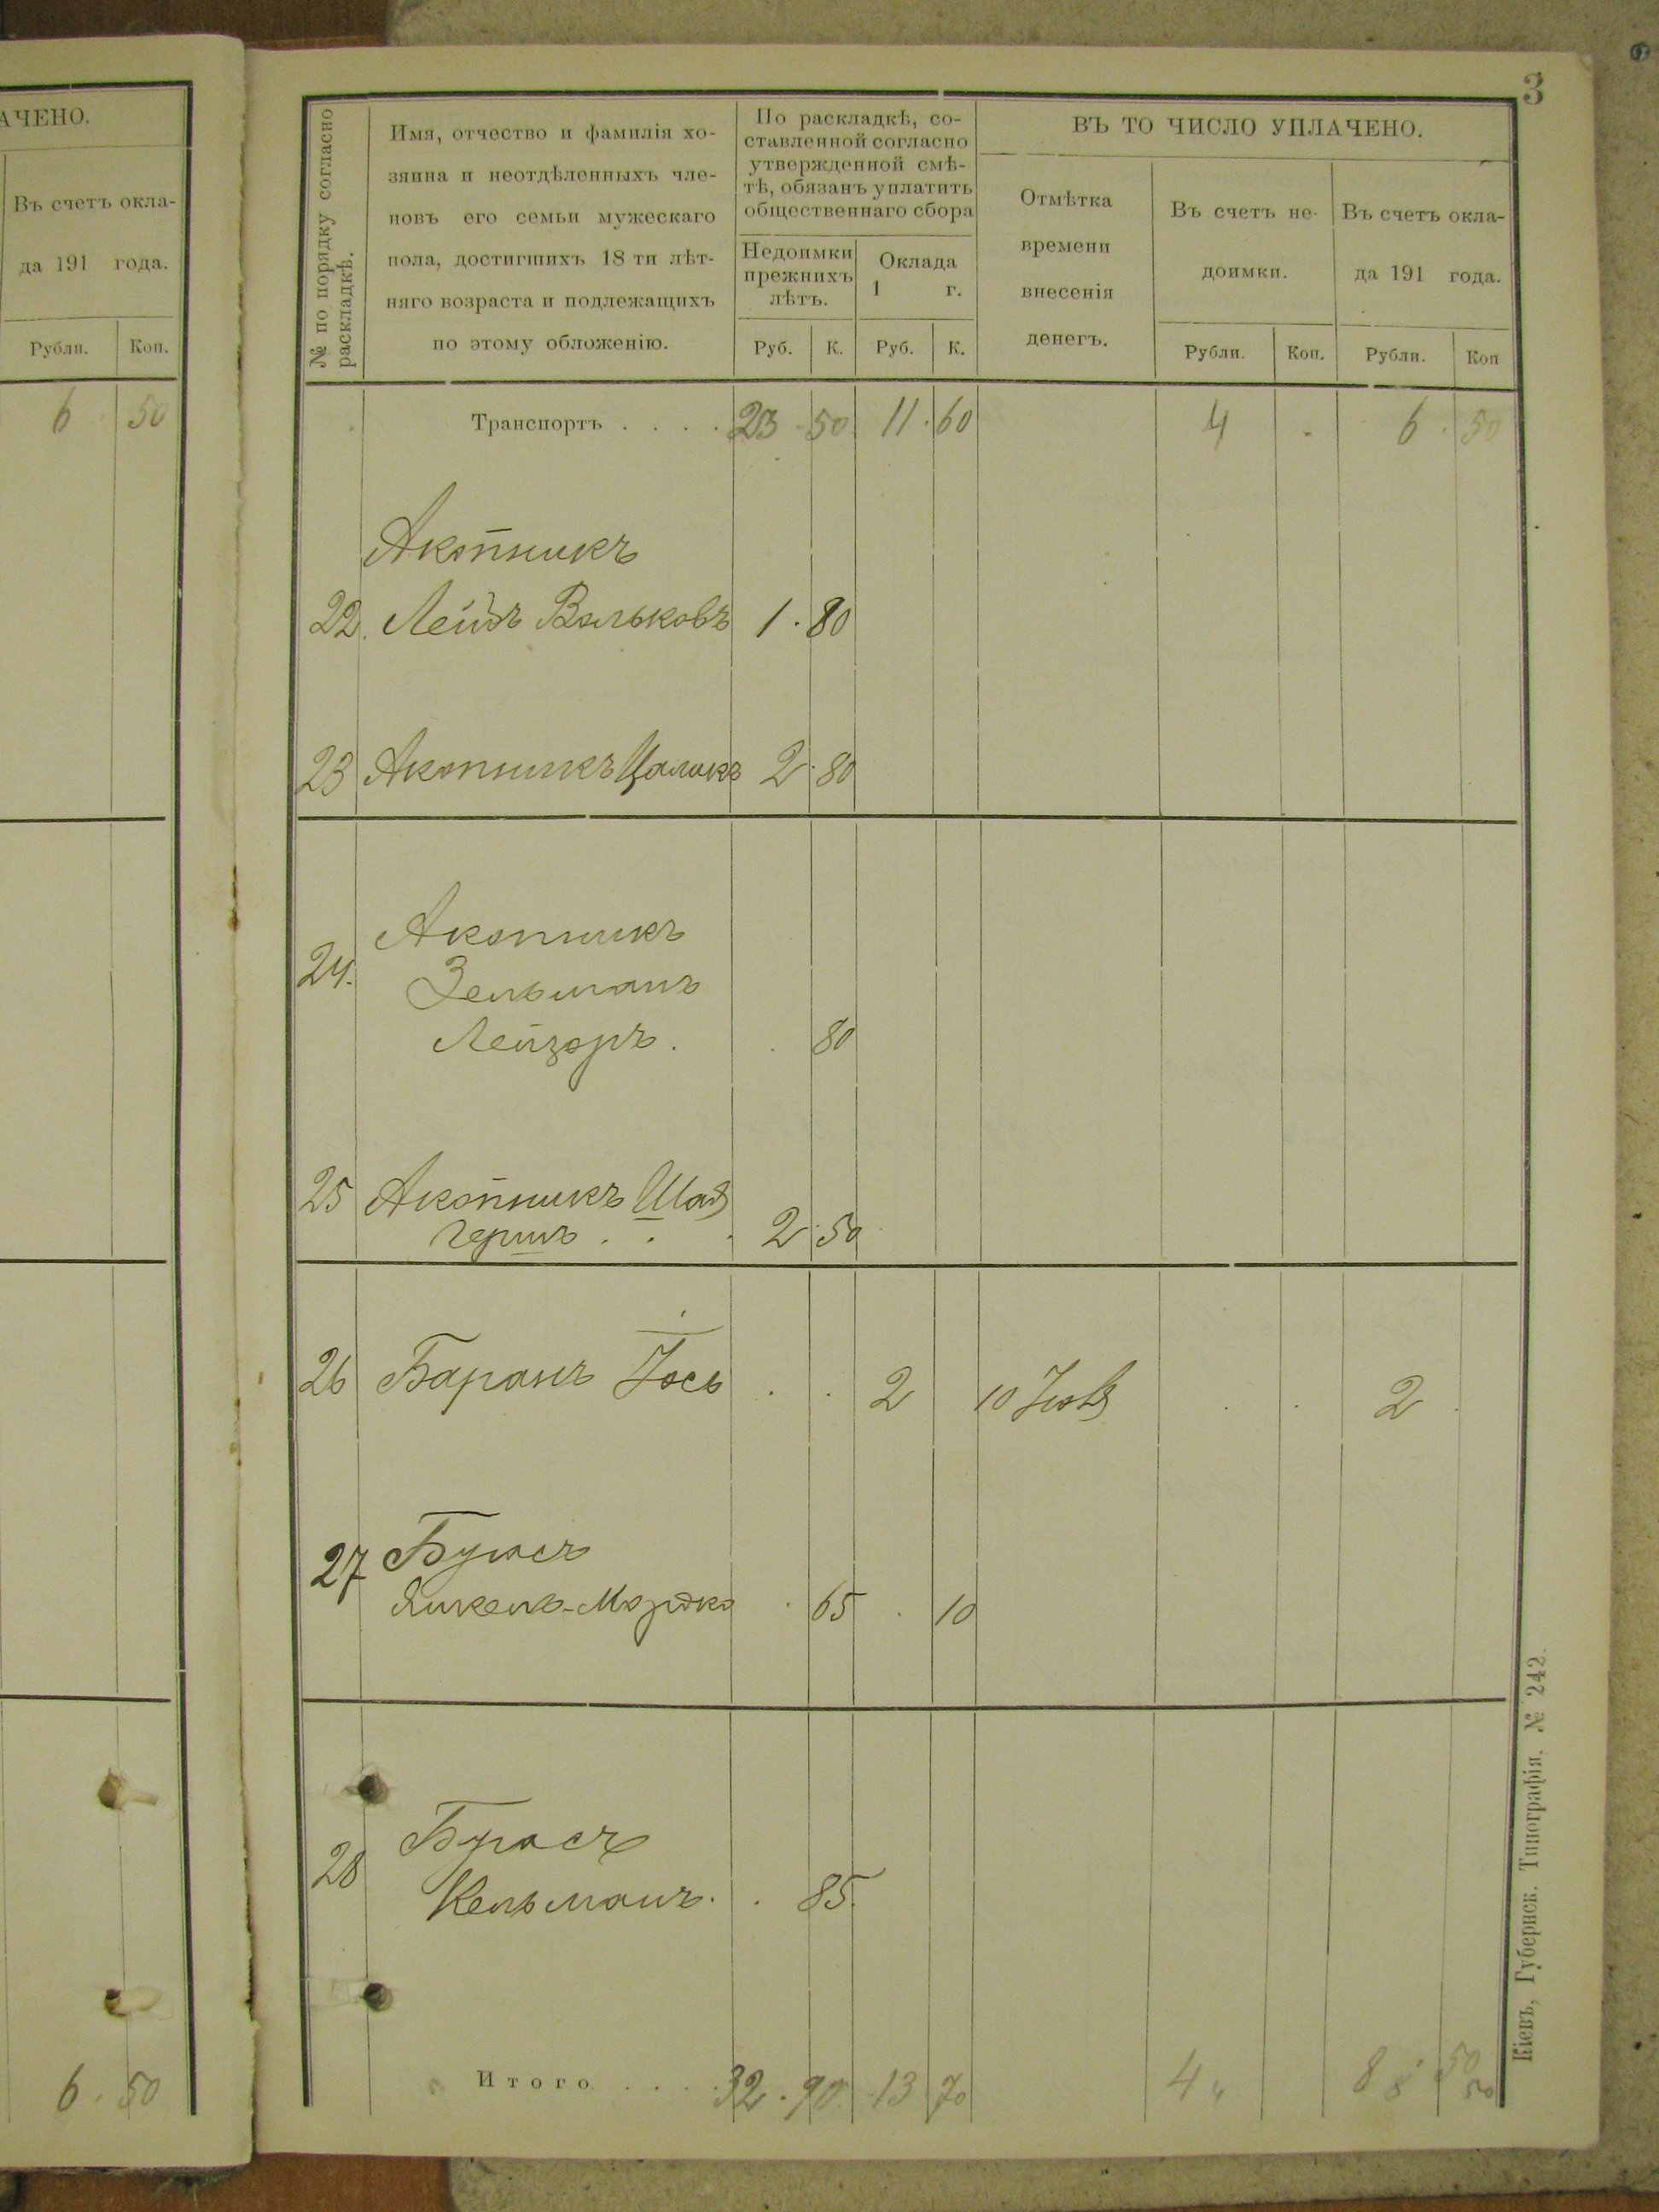 АЧЕНО.
Въ счетъ окла-
да 191 года.
Рубли. Коп.
6 50
6 . 50
3
№ по порядку согласно
раскладкѣ.
Имя, отчество и фамилія хо-
зяина и неотдѣленныхъ чле-
новъ его семьи мужескаго
пола, достигшихъ 18 ти лѣт-
няго возраста и подлежащихъ
по этому обложенію.
По раскладкѣ, со-
ставленной согласно
утвержденной смѣ-
тѣ, обязанъ уплатить
общественнаго сбора
Недоимки
прежнихъ
лѣтъ.
Оклада
1 г.
Руб. К. Руб. К.
ВЪ ТО ЧИСЛО УПЛАЧЕНО.
Отмѣтка
времени
внесенія
денегъ.
Въ счетъ не-
доимки.
Въ счетъ окла-
да 191 года.
Рубли. Коп. Рубли. Коп
Транспортъ . . . . 23 50 11 . 60 4 . 6 . 50
Акотникъ
22. Вольковъ 1 . 80
23 Акотникъ Цаликъ 2 . 80
Акотникъ
24. Зельманъ
Лейзоръ. . 80
25 Акотникъ
Гершъ . . . 2 50
26 Баранъ Іось . . 2 10 . . 2 .
27
Янкель-Мордко . 65 . 10
28
Кельманъ. . 85.
Итого . . . . 32 . 90 13 70 4 8 50
Кіевъ, Губернск. Типографія. № 242.